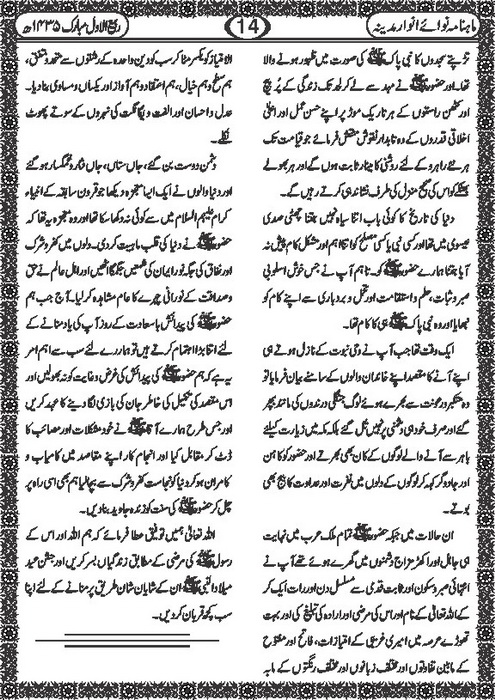 ماہنامہ نوائے انوار مدینہ
14
ربیع الاول مبارک ۱۴۳۵ھ
تڑپتے سجدوں کا نبی پاک ﷺ کی صورت میں ظہور ہونے والا
اور حضور ﷺ نے مہد سے لے کر لحد تک زندگی کے ہر پُر پیچ
اور کٹھن راستوں کے ہر تاریک موڑ پر اپنے حسن عمل اور اعلیٰ
اخلاقی قدروں کے وہ تابدار نقوش منتقل فرمائے جو قیامت تک
ہر نئے راہرو کے لئے روشنی کا مینار ثابت ہوں گے اور ہر بھولے
بھٹکے کو اس کی صحیح منزل کی طرف نشاندہی کرتے رہیں گے۔
دنیا کی تاریخ کا کوئی باب اتنا سیاہ نہیں جتنا چھٹی صدی
عیسوی میں تھا اور کسی نبی یا کسی مصلح کو اتنا اہم اور مشکل کام پیش نہ
آیا جتنا ہمارے حضور ﷺ کو۔ تاہم آپ نے جس خوش اسلوبی
صبر و ثبات، حلم و استقامت اور تحمل و بردباری سے اپنے کام کو
نبھایا اور وہ نبی پاک ﷺ ہی کا کام تھا۔
ایک وقت تھا جب آپ نے وحی نبوت کے نازل ہوتے ہی
اپنے آنے کا مقصد اپنے خاندان والوں کے سامنے بیان فرمایا تو
وہ متکبر و رعونت سے بھرے ہوئے لوگ جنگلی درندوں کی مانند بپھر
گئے اور صرف خود ہی دشمنی پر نہیں تل گئے بلکہ مکہ میں زیارت کیلئے
باہر سے آنے والے لوگوں کے کان بھی بھرتے اور حضور کو کاہن
اور جادوگر کہہ کر لوگوں کے دلوں میں نفرت اور عداوت کا بیج بھی
بوتے۔
ان حالات میں جبکہ حضور ﷺ تمام ملک عرب میں نہایت
ہی جاہل اور اکھڑ مزاج دشمنوں میں گھرے ہوئے تھے آپ نے
انتہائی صبر و سکون اور ثابت قدمی سے مسلسل دن اور رات ایک کر
کے اللہ تعالیٰ کے نام اور اس کی مرضی اور ارادہ کی تبلیغ کی اور بہت
تھوڑے عرصہ میں امیری غریبی کے امتیازات، فاتح اور مفتوح
کے مابین تفاوتوں اور مختلف زبانوں اور مختلف رنگتوں کے مابہ
الامتیاز کو یکسر مٹا کر سب کو دین واحدہ کے رشتوں سے متحد و متفق،
ہم سطح و ہم خیال، ہم استفادہ و ہم آواز اور یکساں و مساوی بنا دیا۔
عدل و احسان اور الفت و یگانگت کی نہروں کے سوتے پھوٹ
نکلے۔
دشمن دوست بن گئے، جاں ستاں، جاں نثار و غمگسار ہو گئے
اور دنیا والوں نے ایک ایسا معجزہ دیکھا جو قرون سابقہ کے انبیاء
کرام علیہم السلام میں سے کوئی نہ دکھا سکا تھا اور وہ معجزہ یہ تھا کہ
حضور ﷺ نے دنیا کی قلب ماہیت کر دی۔ دلوں میں کفر و شرک
اور نفاق کی جگہ نور ایمان کی شمعیں جگمگا اٹھیں اور اہل عالم نے حق
و صداقت کے نورانی چہرے کا عام مشاہدہ کر لیا۔ آج جب ہم
حضور ﷺ کی پیدائش باسعادت کے روز آپ کی یاد منانے کے
لئے اتنا بڑا اہتمام کرتے ہیں تو ہمارے لئے سب سے اہم امر
یہ ہے کہ ہم حضور ﷺ کی پیدائش کی غرض و غایت کو نہ بھولیں اور
اس مقصد کی تکمیل کی خاطر جان کی بازی لگا دینے کا عہد کریں
اور جس طرح ہمارے آقا ﷺ نے خود مشکلات اور مصائب کا
ڈٹ کر مقابلہ کیا اور انجام کار اپنے مقاصد میں کامیاب و
کامران ہو کر دنیا کو نجاست کفر و شرک سے بچا لیا ہم بھی اسی راہ پر
چل کر حضور ﷺ کی سنت کو زندہ جاوید بنا دیں۔
اللہ تعالیٰ ہمیں توفیق عطا فرمائے کہ ہم اللہ اور اس کے
رسول ﷺ کی مرضی کے مطابق زندگیاں بسر کریں اور جشن عید
میلاد النبی ﷺ ان کے شایان شان طریق پر منانے کے لئے اپنا
سب کچھ قربان کر دیں۔